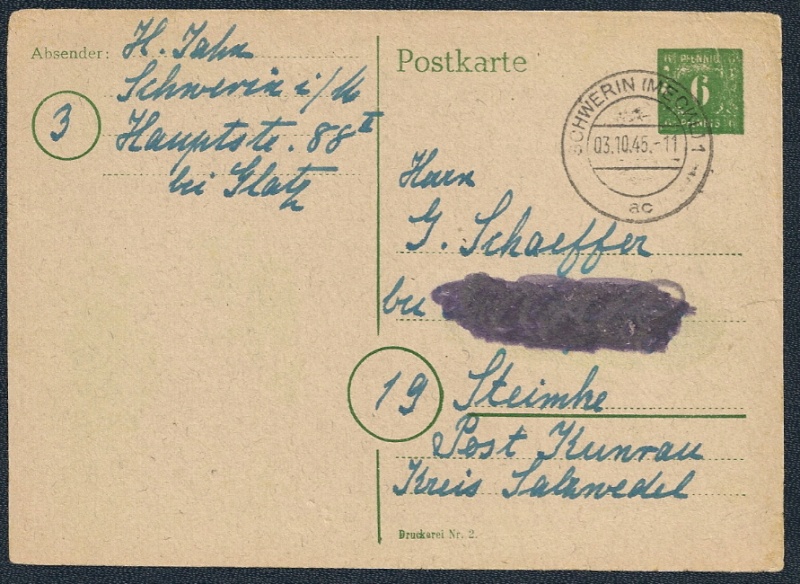 Absender: H. Jahn
Schwerin i/M
3
Hauptstr. 88 II
bei Glatz
Postkarte
PFENNIG
6
PFENNIG
SCHWERIN (MECKL) 1
03.10.45.-11
ac
Herrn
G. Schaeffer
bei
19 Steimke
Post Kunrau
Kreis Salzwedel
Druckerei Nr. 2.